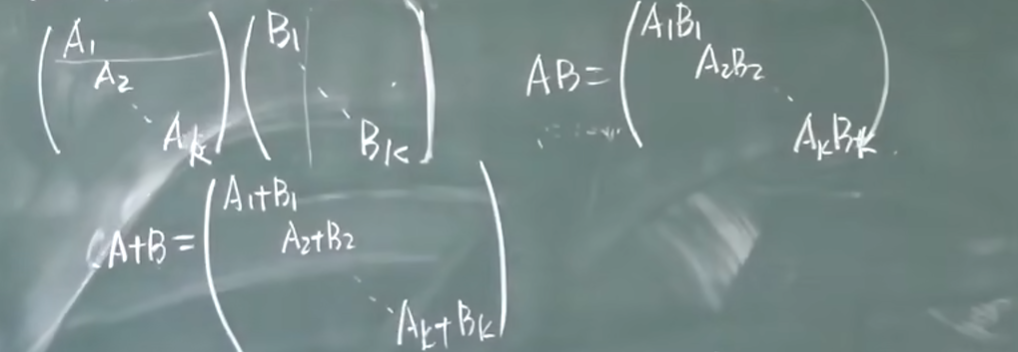 (A₁ A₂ ⋱ Aₖ)(B₁ ⋱ Bₖ)
AB = (A₁B₁ A₂B₂ ⋱ AₖBₖ)
A+B = (A₁+B₁ A₂+B₂ ⋱ Aₖ+Bₖ)